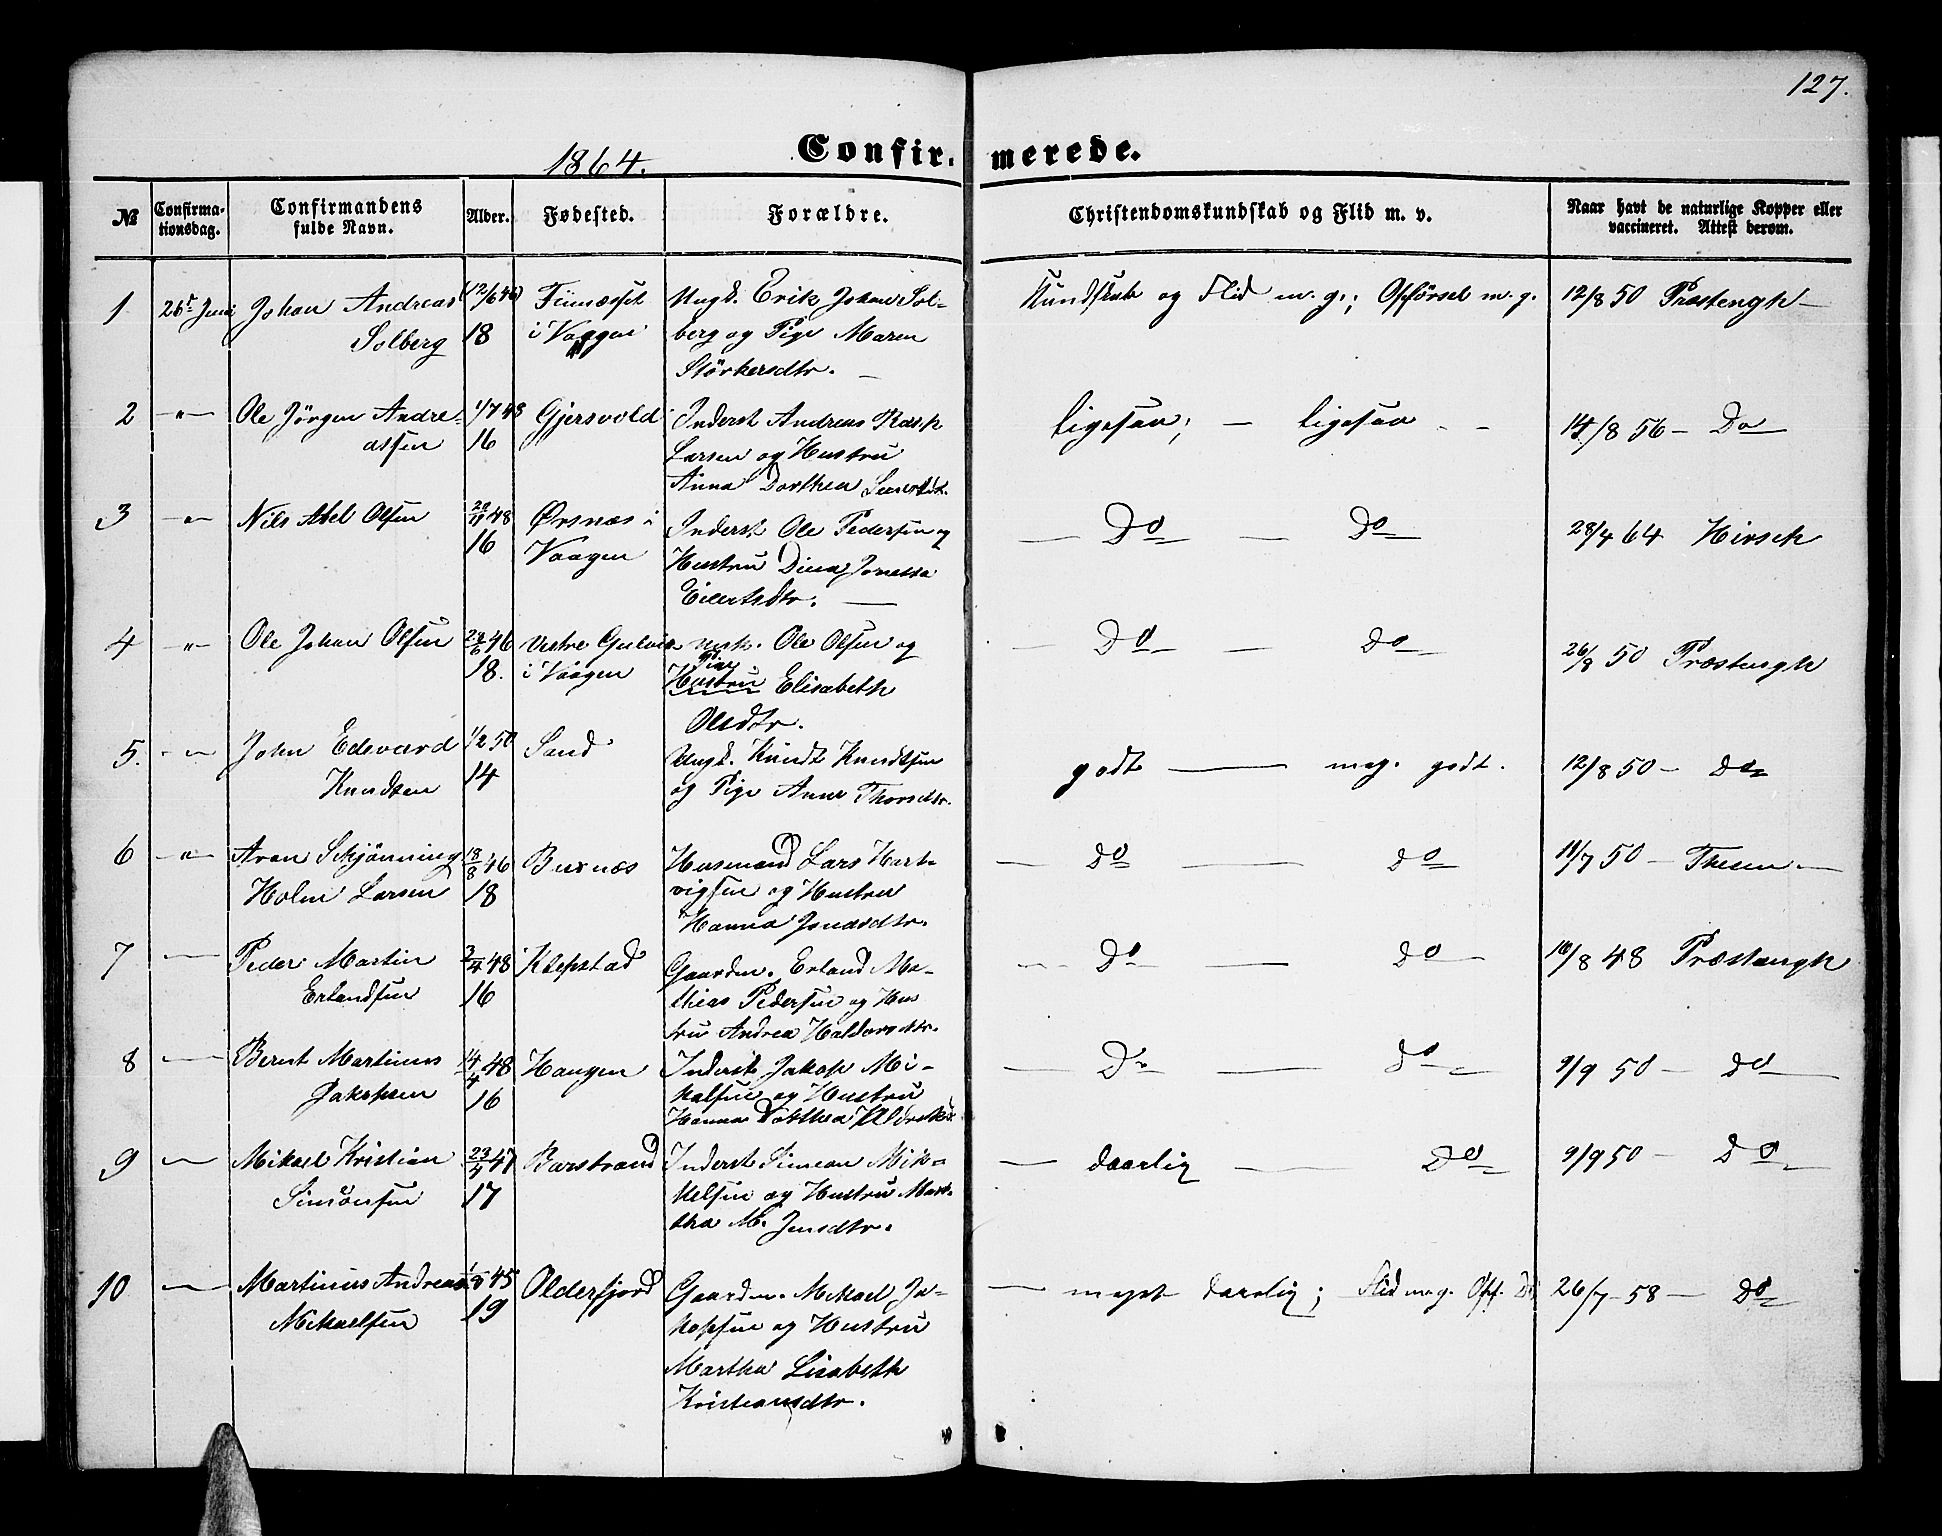 127.
1864. Confirmerede.
№ Confirmationsdag. Confirmandens fulde Navn. Alder. Fødested. Forældre. Christendomskundskab og Flid m. v. Naar havt de naturlige Kopper eller vaccineret. Attest derom.
1 26t Juni Johan Andreas (12/6 46) i Vaagen Ungk. Erik Johan Sol- Kundskab og Flid m. g.; Opførsel m. g. 12/8 50 Præstengh
Solberg 18 berg og Pige Maren
Störkersdtr.
2 -"- Ole Jörgen Andre- 1/7 48 Gjersvold Inderst Andreas Rask ligesaa; — ligesaa 14/8 56 — Do
assen 16 Larsen og Hustru
Anna Dorthea
3 -"- Nils Abel Olsen 48 Ørsnæs i Inderst Ole Pedersen og — Do — Do 28/4 64 Hirsch
16 Vaagen Hustru Dina
Eilertsdtr.
4 -"- Ole Johan Olsen 46 Vestre i Vaagen Ole Olsen og — Do — Do 26/8 50 Præstengh
18. Pige
Hustru Elisabeth
Olsdtr.
5. -"- John Edevard 1/2 50 Sand Ungk. Knudt Knudtsen godt — meg. godt. 12/8 50 — Do
Knudsen 14 og Pige Anne Thorsdtr.
6 -"- Aron Schjönning 18/8 46 Buxnæs Husmand Lars Hart- — Do — Do 11/7 50 — Thesen
Holm Larsen 18 vigsen og Hustru
Hanna Jonasdtr.
7 — Peder Martin 3/4 48 Klepstad Gaardm. Erland Ma- — Do — Do 10/8 48 Præstengh
Erlandsen 16 thias Pedersen og Hus
tru Andrea Haldorsdtr.
8 — Bernt Martinus 14/4 48 Haugen Inderst Jakop Mi- — Do — Do 9/9 50 — Do
Jakopsen 16 kalsen og Hustru
Hanna Dorthea
9 — Mikael Kristian 47 Barstrand Inderst Simeon Mik- — daarlig — Do 9/9 50 — Do
Simönsen 17 kelsen og Hustru Mar-
tha M. Jensdtr.
10 — Martinus Andreas 45 Olderfjord Gaardm. Mikael Ja- — meget daarlig; Flid meg. Opf. Do 26/7 58 — Do
Mikaelsen 19 kopsen og Hustru
Martha Lisabeth
Kristiansdtr.